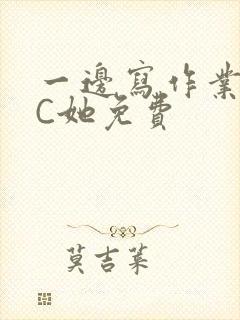 一邊寫作業
C她免費
莫吉葉